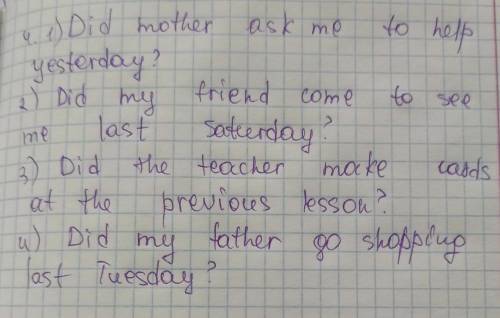 4. 1) Did mother ask me to help
yesterday?
2) Did my friend come to see
me last saturday?
3) Did the teacher make cards
at the previous lesson?
4) Did my father go shopping
last Tuesday?